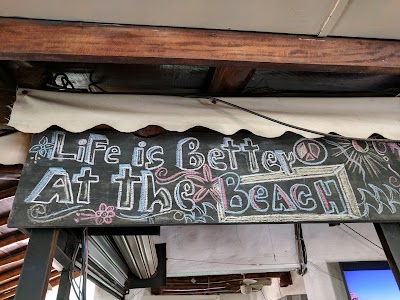 Life is Better
At the Beach